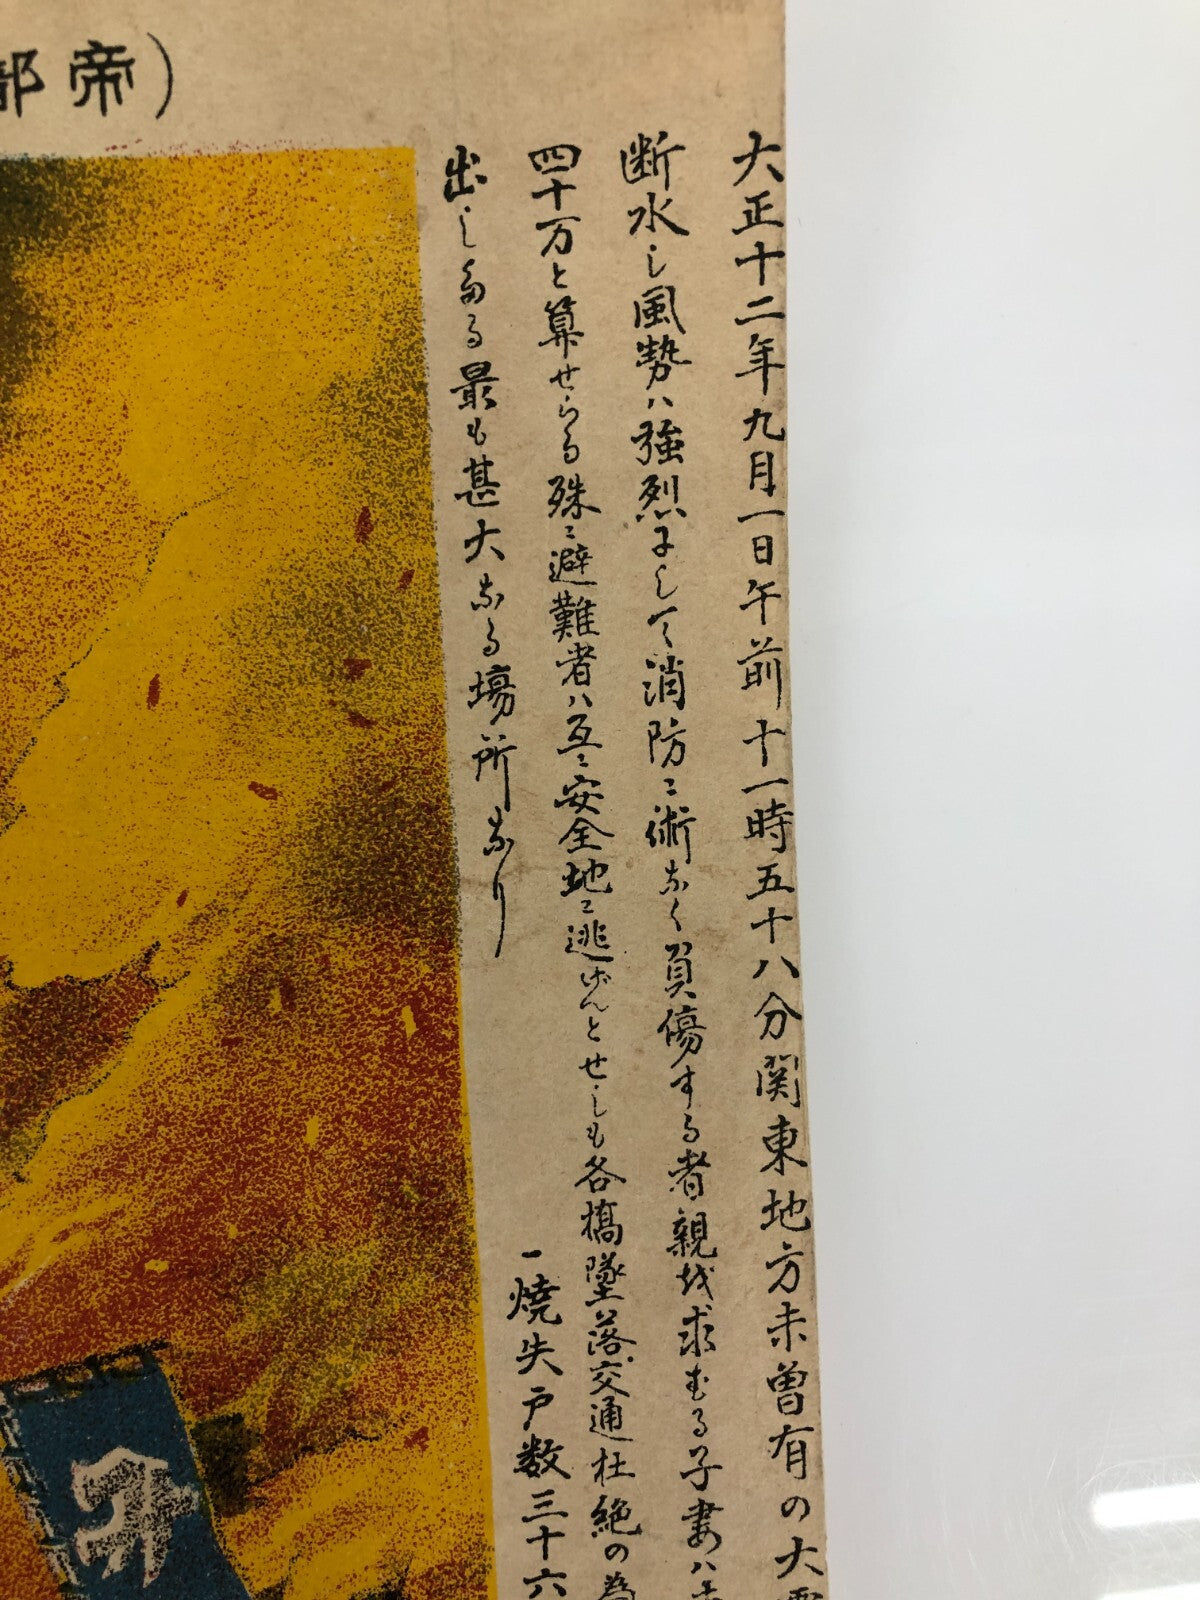 帝都)
大正十二年九月一日午前十一時五十八分関東地方未曽有の大震
断水し風勢ハ強烈にして消防に術なく負傷する者親を求むる子妻ハ
四十万と算せらる殊ニ避難者ハ互ニ安全地ニ逃げんとせしも各橋墜落交通杜絶の為
出しめる最も甚大なる場所なり
一焼失戸数三十六